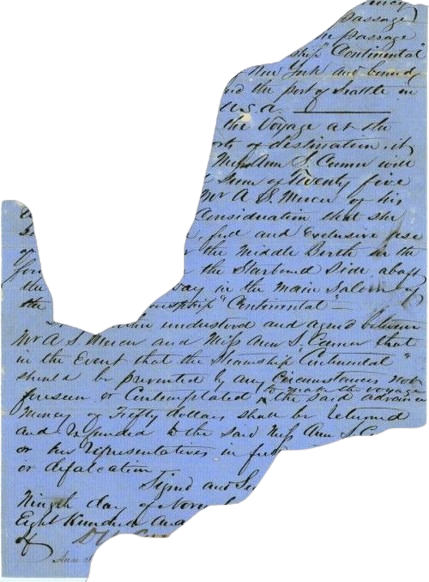 passage
passage
ship "Continental"
New York and bound
the port of Seattle in
U.S.A.
the Voyage at the
of destination it
Miss Ann S. Conner will
Sum of Twenty five
Mr A S. Mercer of his
Consideration that she
and Exclusive use
the Middle Berth in the
the Starboard Side abaft
the way in the main Saloon of
the Steamship "Continental" –
understood and agreed between
Mr A S Mercer and Miss Ann S. Conner that
in the Event that the Steamship Continental"
should be prevented by any Circumstances not
foreseen or Contemplated to make the voyage the said advance
Money of Fifty dollars shall be returned
and refunded to the said Miss Ann S. Co
or her representatives in full
or defalcation
Signed and Se
Ninth day of Novem
Eight Hundred And
of